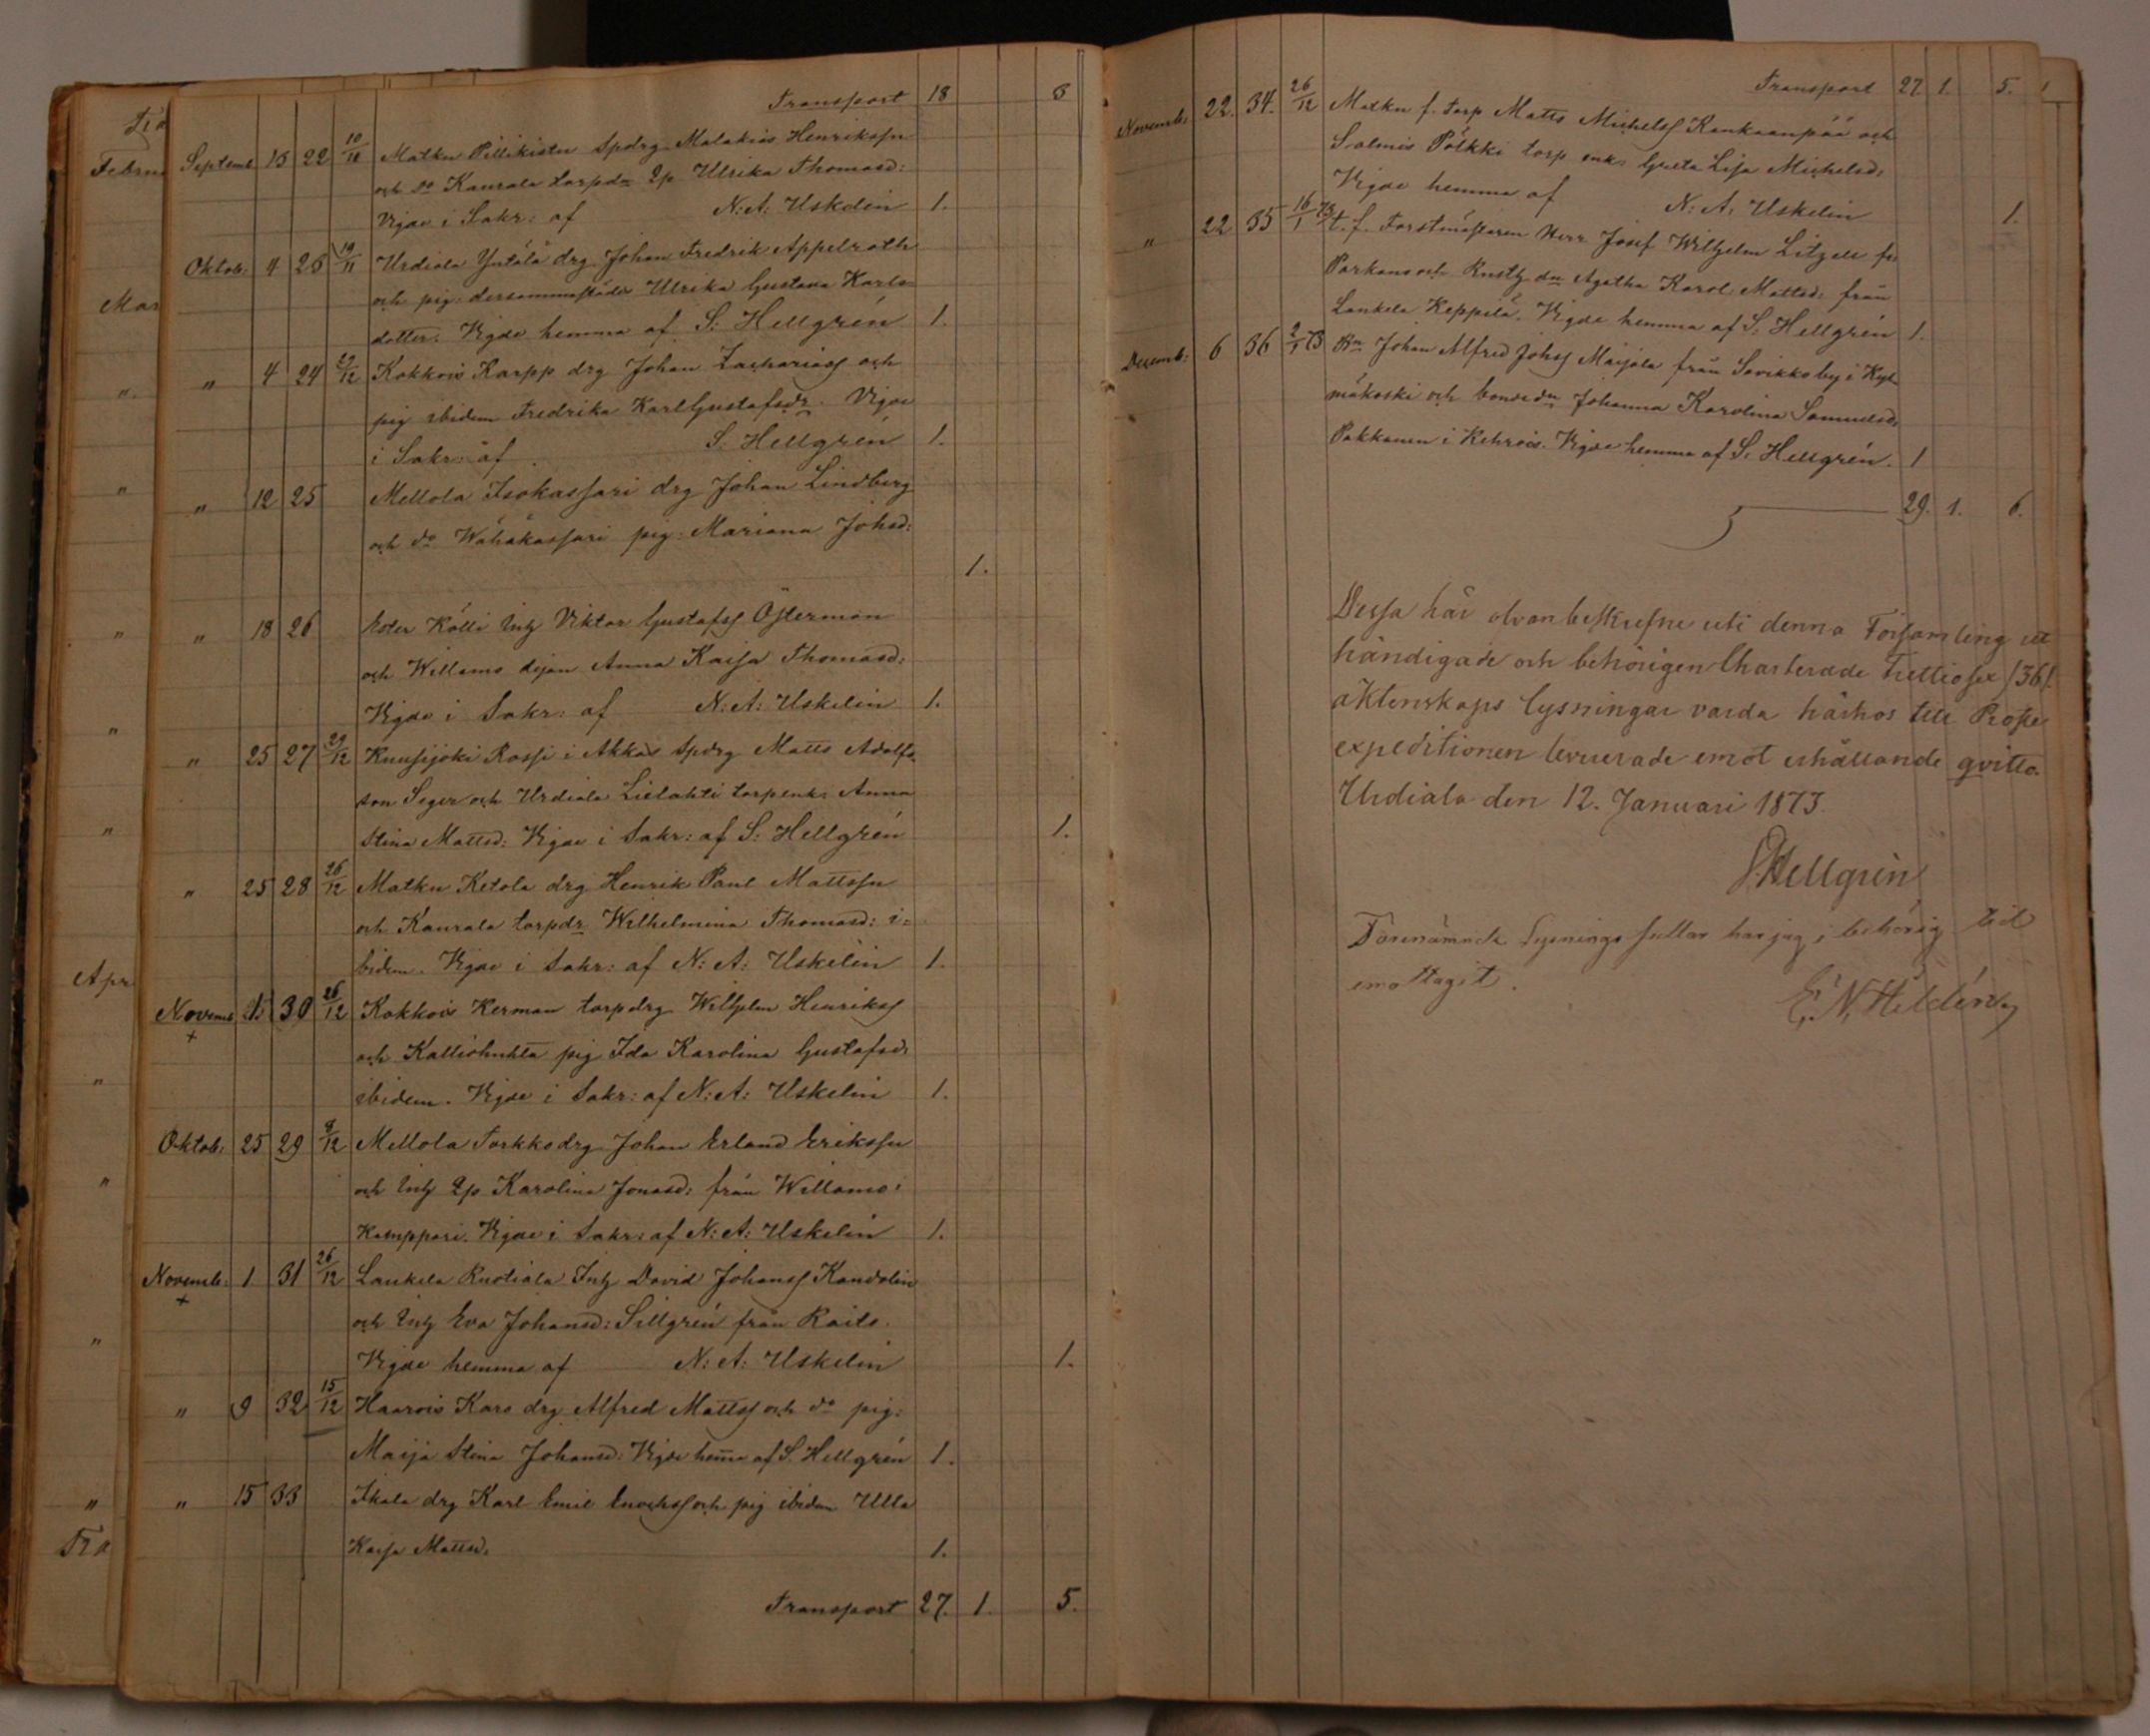 Transport 18 3
Septemb 15 22 10/11 Matku Pillikistu spdrg Malakias Henrikssn
och do Kaurala torpdr Qp Ulrika Thomasd:
Vigde i Sakr: af N: A: Uskelin 1.
Oktob: 4 23 19/11 Urdiala Yntälä drg Johan Fredrik Appelroth
och pig: dersammastädes Ulrika Gustava Karls=
dotter. Vigde hemma af S: Hellgrén 1.
" 4 24 29/12 Kokkois Karpp drg Johan Zacharias och
pig ibidem Fredrika Karl Gustafsdr. Vigde
i Sakr: af S: Hellgrén 1.
" 12 25 Mellola Isokassari drg Johan Lindberg
och do Wähäkassari pig: Mariana Johsd:
1.
" 18 26 Kölli Inh Viktor Gustafss Österman
och Willamo dejan Anna Kaisa Thomasd:
Vigde i Sakr: af N: A: Uskelin 1.
" 25 27 29/12 Knusijoki Rossi i Akkas spdrg Matts Adolfs
son Seger och Urdiala Lielahti torpenk: Anna
Stina Mattsd: Vigde i Sakr: af S: Hellgrén 1.
" 25 28 26/12 Matku Ketola drg Henrik Paul Mattssn
och Kaurala torpdr Wilhelmina Thomasd: i=
bidem. Vigde i Sakr: af N: A: Uskelin 1.
Novemb 1. 30 26/12 Kokkois Herman torpdrg Wilhelm Henrikss
+
och Kalliohuhta pig Ida Karolina Gustafsd:
ibidem. Vigde i Sakr: af N: A: Uskelin 1.
Oktob: 25 29 8/12 Mellola Torkko drg Johan Erland Erikssn
och Inh Qp Karolina Jonasd: från Willamo:
Kamppari. Vigde i Sakr: af N: A: Uskelin 1.
Novemb: 1 31 26/12 Laukela Ruotiala Inh David Johanss Kandolin
+
och Inh Eva Johansd: Sillgrén från Raito.
Vigde hemma af N: A: Uskelin 1.
" 9 32 15/12 Haarois Karo drg Alfred Mattss och do pig:
Maija Stina Johansd: Vigde hema af S. Hellgrén 1.
" 15 33 Ikala drg Karl Emil Enochss och pig ibidem Ulla
Kaisa Mattsd. 1.
Transport 27. 1. 5.
Transport 27 1. 5.
Novemb: 22. 34. 26/12 Matku f. torp Matts Michelss Kankaanpää och
Salmis Pölkki torp enk: Greta Lisa Michelsd:
Vigde hemma af N: A: Uskelin 1.
" 22 35 16/1 73 t. f. Forstmästaren Herr Josef Wilhelm Litzell fr:
Parkano och Rusth dn Agatha Karol: Mattsd: från
Laukela Keppilä. Vigde hemma af S: Hellgrén 1.
Decemb: 6 36 2/1 73 Bn Johan Alfred Johss Marjola från Sorikko by i Kyl=
mäkoski och bondedn Johanna Karolina Samuelsd:
Pakkanen i Kehrois. Vigde hemma af S. Hellgrén. 1
29. 1. 6.
Dessa här ofvan beskrefne uti denna Församling ut
händigade och behörigen Charterade Trettiosex /36/.
äktenskaps lysningar varda härhos till Prosze
expeditionen levererade emot erhållande qvitto.
Urdiala den 12. Januari 1873.
S. Hellgrén
Förenämnde Lysnings sedlar har jag i behörig tid
emottagit.
E. N. Heldén